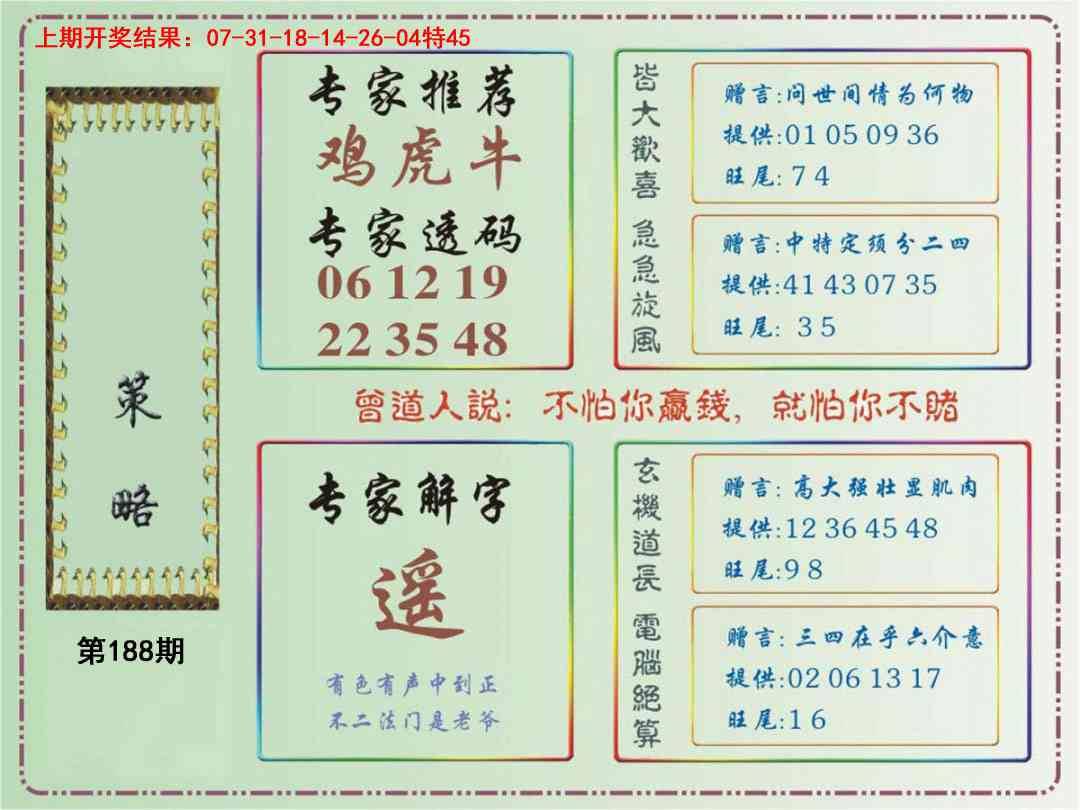 上期开奖结果：07-31-18-14-26-04特45
策略
第188期
专家推荐
鸡虎牛
专家透码
06 12 19
22 35 48
皆大歡喜
赠言:问世间情为何物
提供:01 05 09 36
旺尾: 7 4
急急旋風
赠言:中特定须分二四
提供:41 43 07 35
旺尾: 3 5
曾道人説: 不怕你贏錢, 就怕你不賭
专家解字
遥
有色有声中到正
不二法门是老爷
玄機道長
赠言: 高大强壮显肌肉
提供:12 36 45 48
旺尾:9 8
電腦絕算
赠言: 三四在乎六介意
提供:02 06 13 17
旺尾:1 6